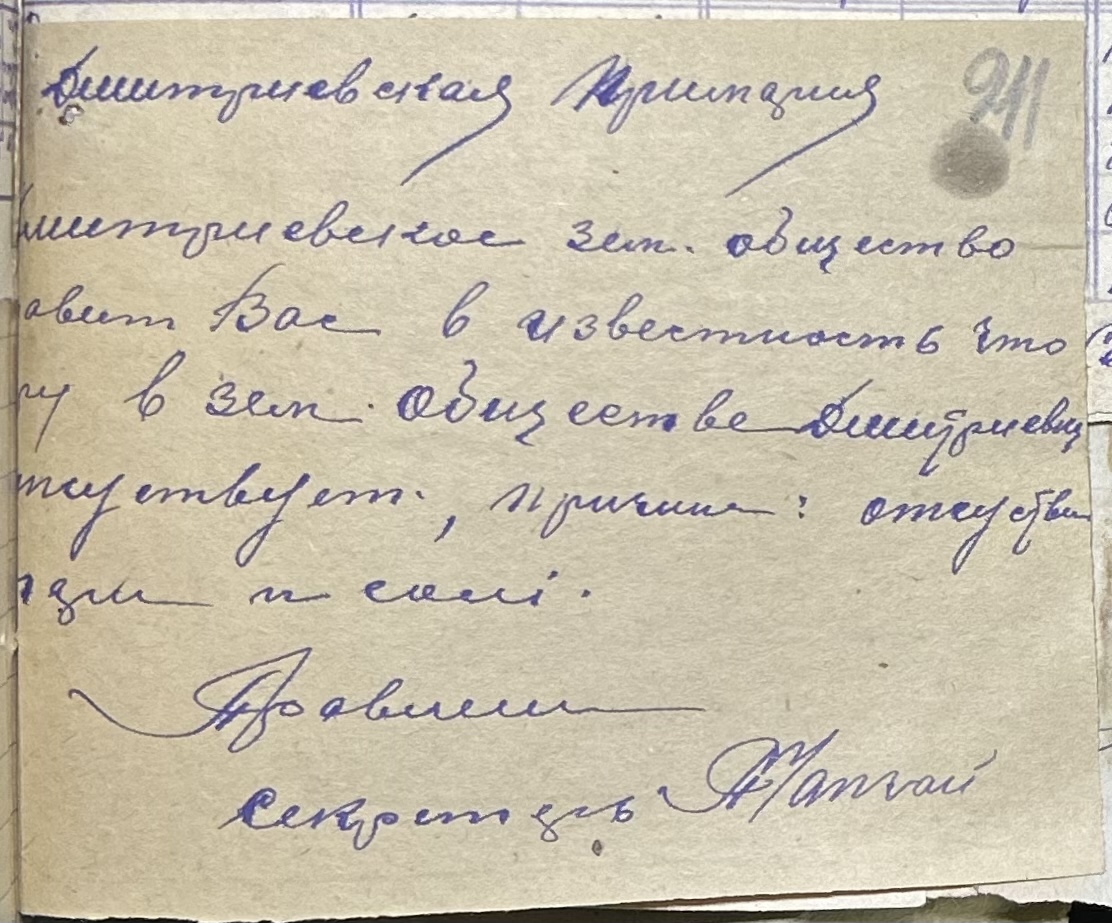 Дмитриевская Примария
241
митриевское зем. общество
авит Вас в известность что
ру в зем. обществе Дмитриевц
тсуствует, причина: отсустви
и соли.
секретарь